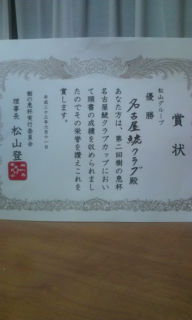 賞状
松山グループ
優勝
名古屋鯱クラブ殿
あなた方は、第二回樹の恵杯
名古屋鯱クラブカップにおい
て頭書の成績を収められまし
たのでその栄誉を讃えこれを
賞します。
平成二十三年六月十一日
樹の恵杯実行委員会
理事長 松山登